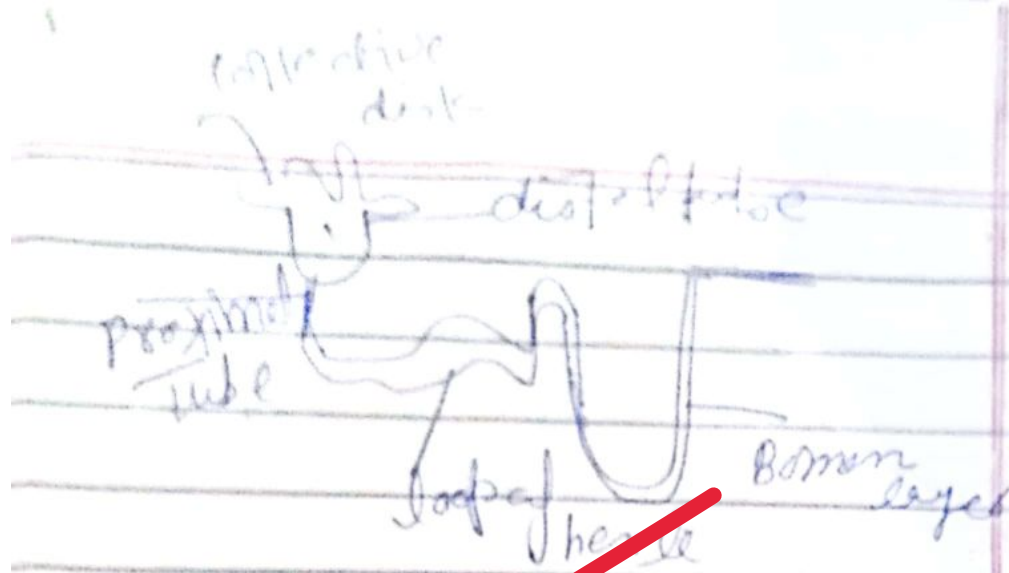 collective
duct
distal tube
proximal
tube
loop of
henle
Bomen
layer